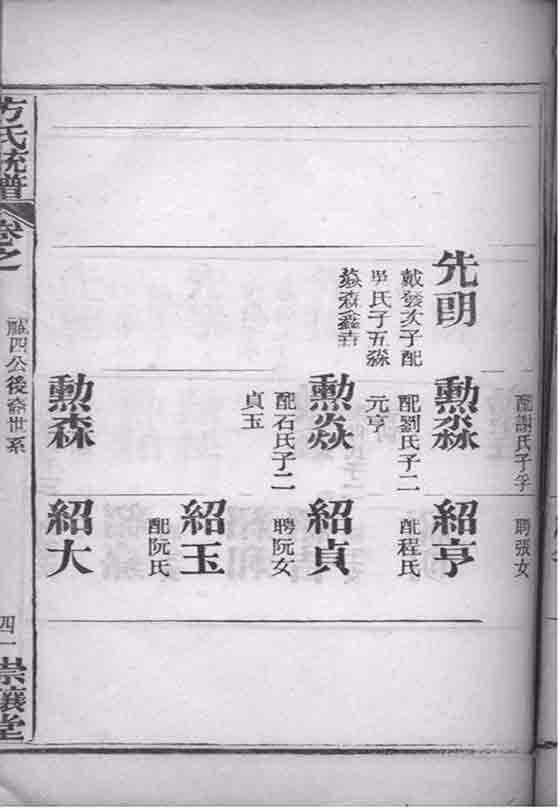 配謝氏子孚
聘張女
先明
戴發次子配
氏子五淼
焱森鑫垚
勲淼
配劉氏子二
元亨
勲焱
配石氏子二
貞玉
勲森
紹亨
配程氏
紹貞
聘阮女
紹玉
配阮氏
紹大
方氏統譜
卷之
四公後裔世系
四一
崇讓堂